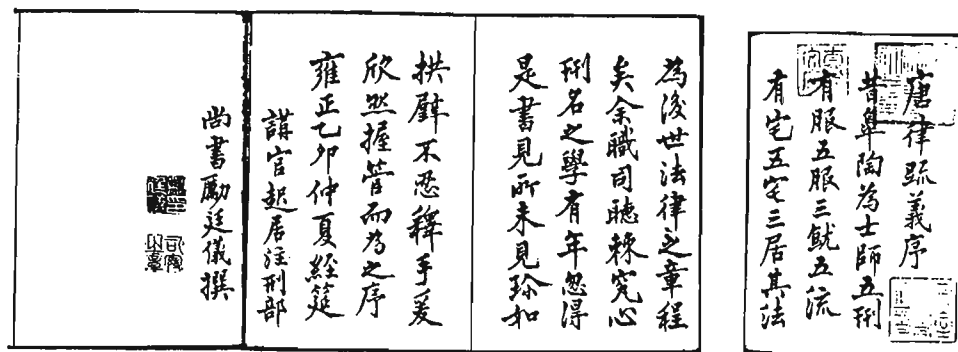 唐律疏義序
昔皐陶為士師五刑
有服五服三就五流
有宅五宅三居其法
為後世法律之章程
矣余職司聽棘究心
刑名之學有年忽得
是書見所未見珍如
拱璧不忍釋手爰
欣然握管而為之序
雍正乙卯仲夏經筵
講官起居注刑部
尚書勵廷儀撰